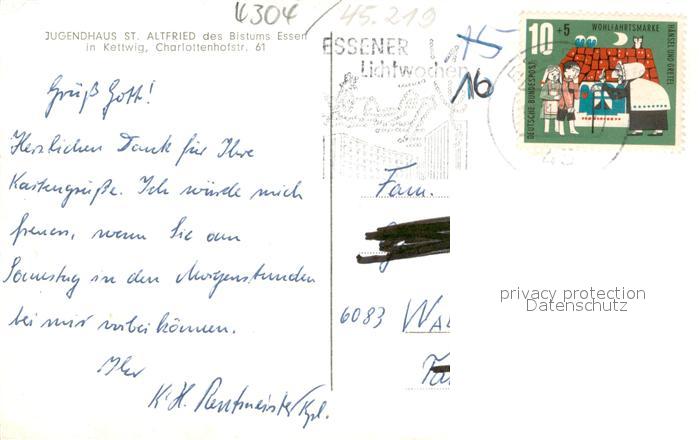 4304 / 45.219
JUGENDHAUS ST. ALTFRIED des Bistums Essen
in Kettwig, Charlottenhofstr. 61
Grüß Gott!
Herzlichen Dank für Ihre
Kartengrüße. Ich würde mich
freuen, wenn Sie am
Samstag in den Morgenstunden
bei mir vorbei können.
Ihr
K. H. Rentmeister Kpl.
ESSENER
Lichtwochen
15
16
10 +5 WOHLFAHRTSMARKE
HÄNSEL UND GRETEL
DEUTSCHE BUNDESPOST
43
Fam.
6083 WAL
privacy protection
Datenschutz